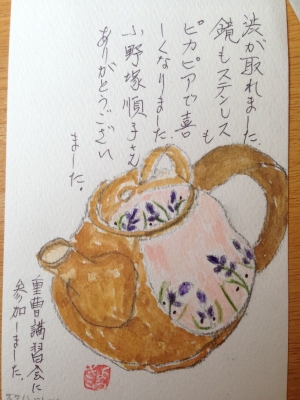 渋が取れました。
鏡もステンレスも
ピカピアで喜
しくなりました。
小野塚順子さん
ありがとうござい
ました。
重曹講習会に
参加しました。